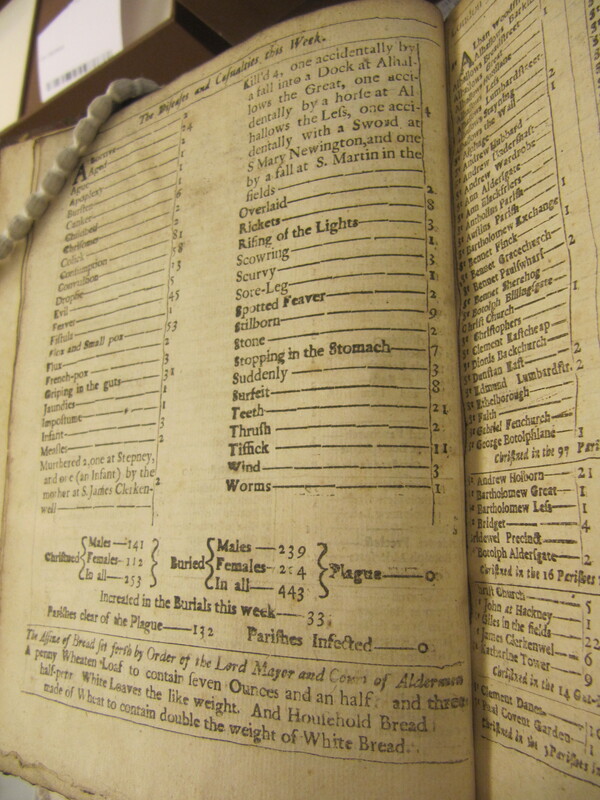 The Diseases and Casualties this Week.
Abortive 2
Aged 24
Ague
Apoplexy
Bursten
Canker
Childbed
Chrisomes
Colick
Consumption 81
Convulsion 58
Dropsie 13
Evil 5
Feaver 45
Fistula 1
Flox and Small pox 53
Flux 2
French-pox 3
Griping in the guts 31
Jaundies 1
Impostume 1
Infant 3
Measles 2
Murthered 2, one at Stepney,
and one (an Infant) by the
mother at S. James Clerken-
well 2
Kill'd 4, one accidentally by
a fall into a Dock at Alhal-
lows the Great, one acci-
dentally by a horse at Al-
hallows the Leſs, one acci-
dentally with a Sword at
S Mary Newington, and one
by a fall at S. Martin in the
fields 4
Overlaid 2
Rickets 8
Riſing of the Lights 3
Scowring 1
Scurvy 3
Sore-Leg 1
Spotted Feaver 2
Stilborn 9
Stone 2
Stopping in the Stomach 7
Suddenly 3
Surfeit 8
Teeth 21
Thruſh 2
Tiſſick 11
Wind 3
Worms 1
Chriſtned Males—141
Females—112
In all—253
Buried Males—239
Females—204
In all—443
Plague—0
Increaſed in the Burials this week—33
Pariſhes clear of the Plague—132 Pariſhes Infected—0
The Aſſize of Bread ſet forth by Order of the Lord Mayor and Court of Aldermen
A penny Wheaten Loaf to contain ſeven Ounces and an half, and three
half-peny White Loaves the like weight. And Houſehold Bread
made of Wheat to contain double the weight of White Bread.
Alban Woodſtr
Alhallows Barkin
Alhallows Breadſtreet
Alhallows Lumbardſtreet
Alhallows Stayning
Alhallows the Wall
Alphage
Andrew Hubbard
Andrew Underſhaft
Andrew Wardrobe
Ann Alderſgate
Ann Blackfriers 1
Antholins Pariſh
Auſtins Pariſh
Bartholomew Exchange 1
Bennet Finck
Bennet Gracechurch 2
Bennet Paulſwharf
Bennet Sherehog
Botolph Billingſgate 1
Chriſt Church
Chriſtophers
Clement Eaſtcheap
Dionis Backchurch
Dunſtan Eaſt 2
Edmund Lumbardſtr. 2
Ethelborough
Faith
Gabriel Fenchurch
George Botolphlane
Chriſtned in the 97 Pari
Andrew Holborn 21
Bartholomew Great 1
Bartholomew Leſs 1
Bridget 4
Bridewel Precinct
Botolph Alderſgate 2
Chriſtned in the 16 Pariſhes
Chriſt Church 5
John at Hackney 1
Giles in the fields 22
James Clerkenwel 6
Katharine Tower 9
Chriſtned in the 14
Clement Danes
Paul Covent Garden
Chriſtned in the 5 Pariſhes in